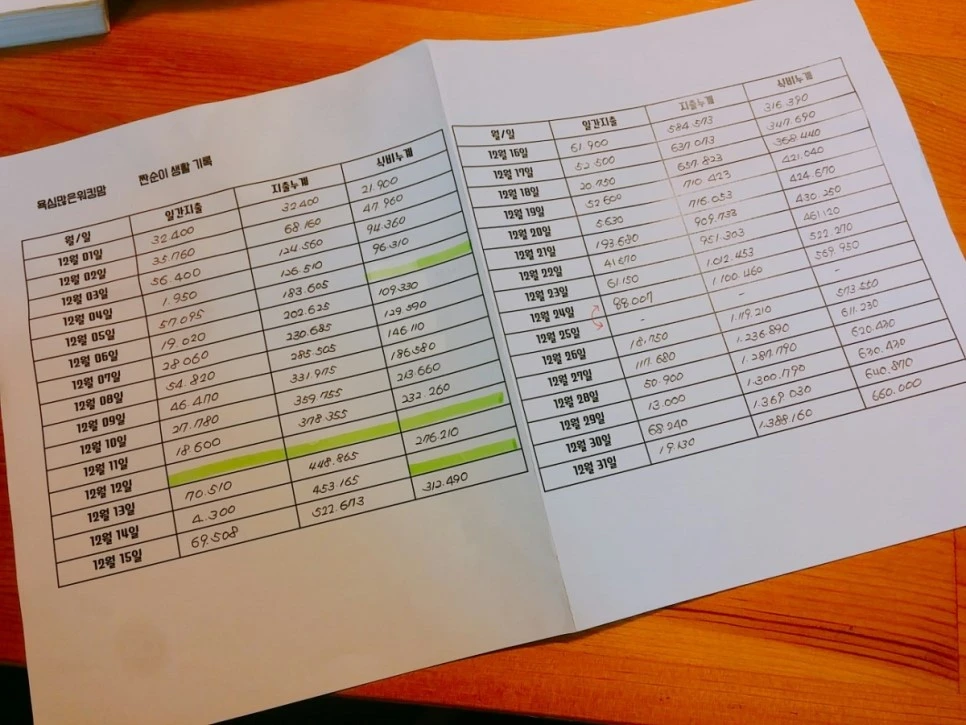 욕심많은워킹맘 짠순이 생활 기록
월/일 일간지출 지출누계 식비누계
12월 01일 32.400 32.400 21.900
12월 02일 35.760 68.160 47.960
12월 03일 56.400 124.560 94.360
12월 04일 1.950 126.510 96.310
12월 05일 57.095 183.605
12월 06일 19.020 202.625 109.330
12월 07일 28.060 230.685 129.590
12월 08일 54.820 285.505 146.110
12월 09일 46.470 331.975 186.580
12월 10일 27.780 359.755 213.660
12월 11일 18.600 378.355 232.260
12월 12일
12월 13일 70.510 448.865 276.210
12월 14일 4.300 453.165
12월 15일 69.508 522.673 312.490
월/일 일간지출 지출누계 식비누계
12월 16일 61.900 584.573 316.390
12월 17일 52.500 637.073 347.690
12월 18일 20.750 657.823 368.440
12월 19일 52.600 710.423 421.040
12월 20일 5.630 716.053 424.670
12월 21일 193.680 909.733 430.250
12월 22일 41.570 951.303 461.120
12월 23일 61.150 1.012.453 522.270
12월 24일 88.007 1.100.460 569.950
12월 25일 - - -
12월 26일 18.750 1.119.210 573.550
12월 27일 117.680 1.236.890 611.230
12월 28일 50.900 1.287.790 620.430
12월 29일 13.000 1.300.790 630.430
12월 30일 68.240 1.369.030 640.870
12월 31일 19.130 1.388.160 660.000